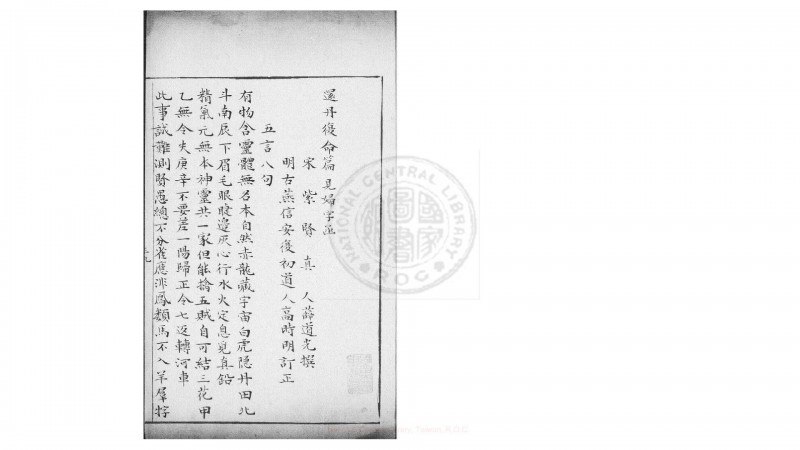 還丹復命篇 見婦字匣
宋紫賢真人薛道光撰
明古燕信安復初道人高時明訂正
五言八句
有物含靈體無名本自然赤龍藏宇宙白虎隱丹田北
斗南辰下眉毛眼睫邊灰心行水火定息覓真鉛
精氣元無本神靈共一家但能擒五賊自可結三花甲
乙無令失庚辛不要差一陽歸正令七返轉河車
此事誠難測賢愚總不分雀應非鳳類馬不入羊羣
NATIONAL CENTRAL LIBRARY
R.O.C.
國家圖書館